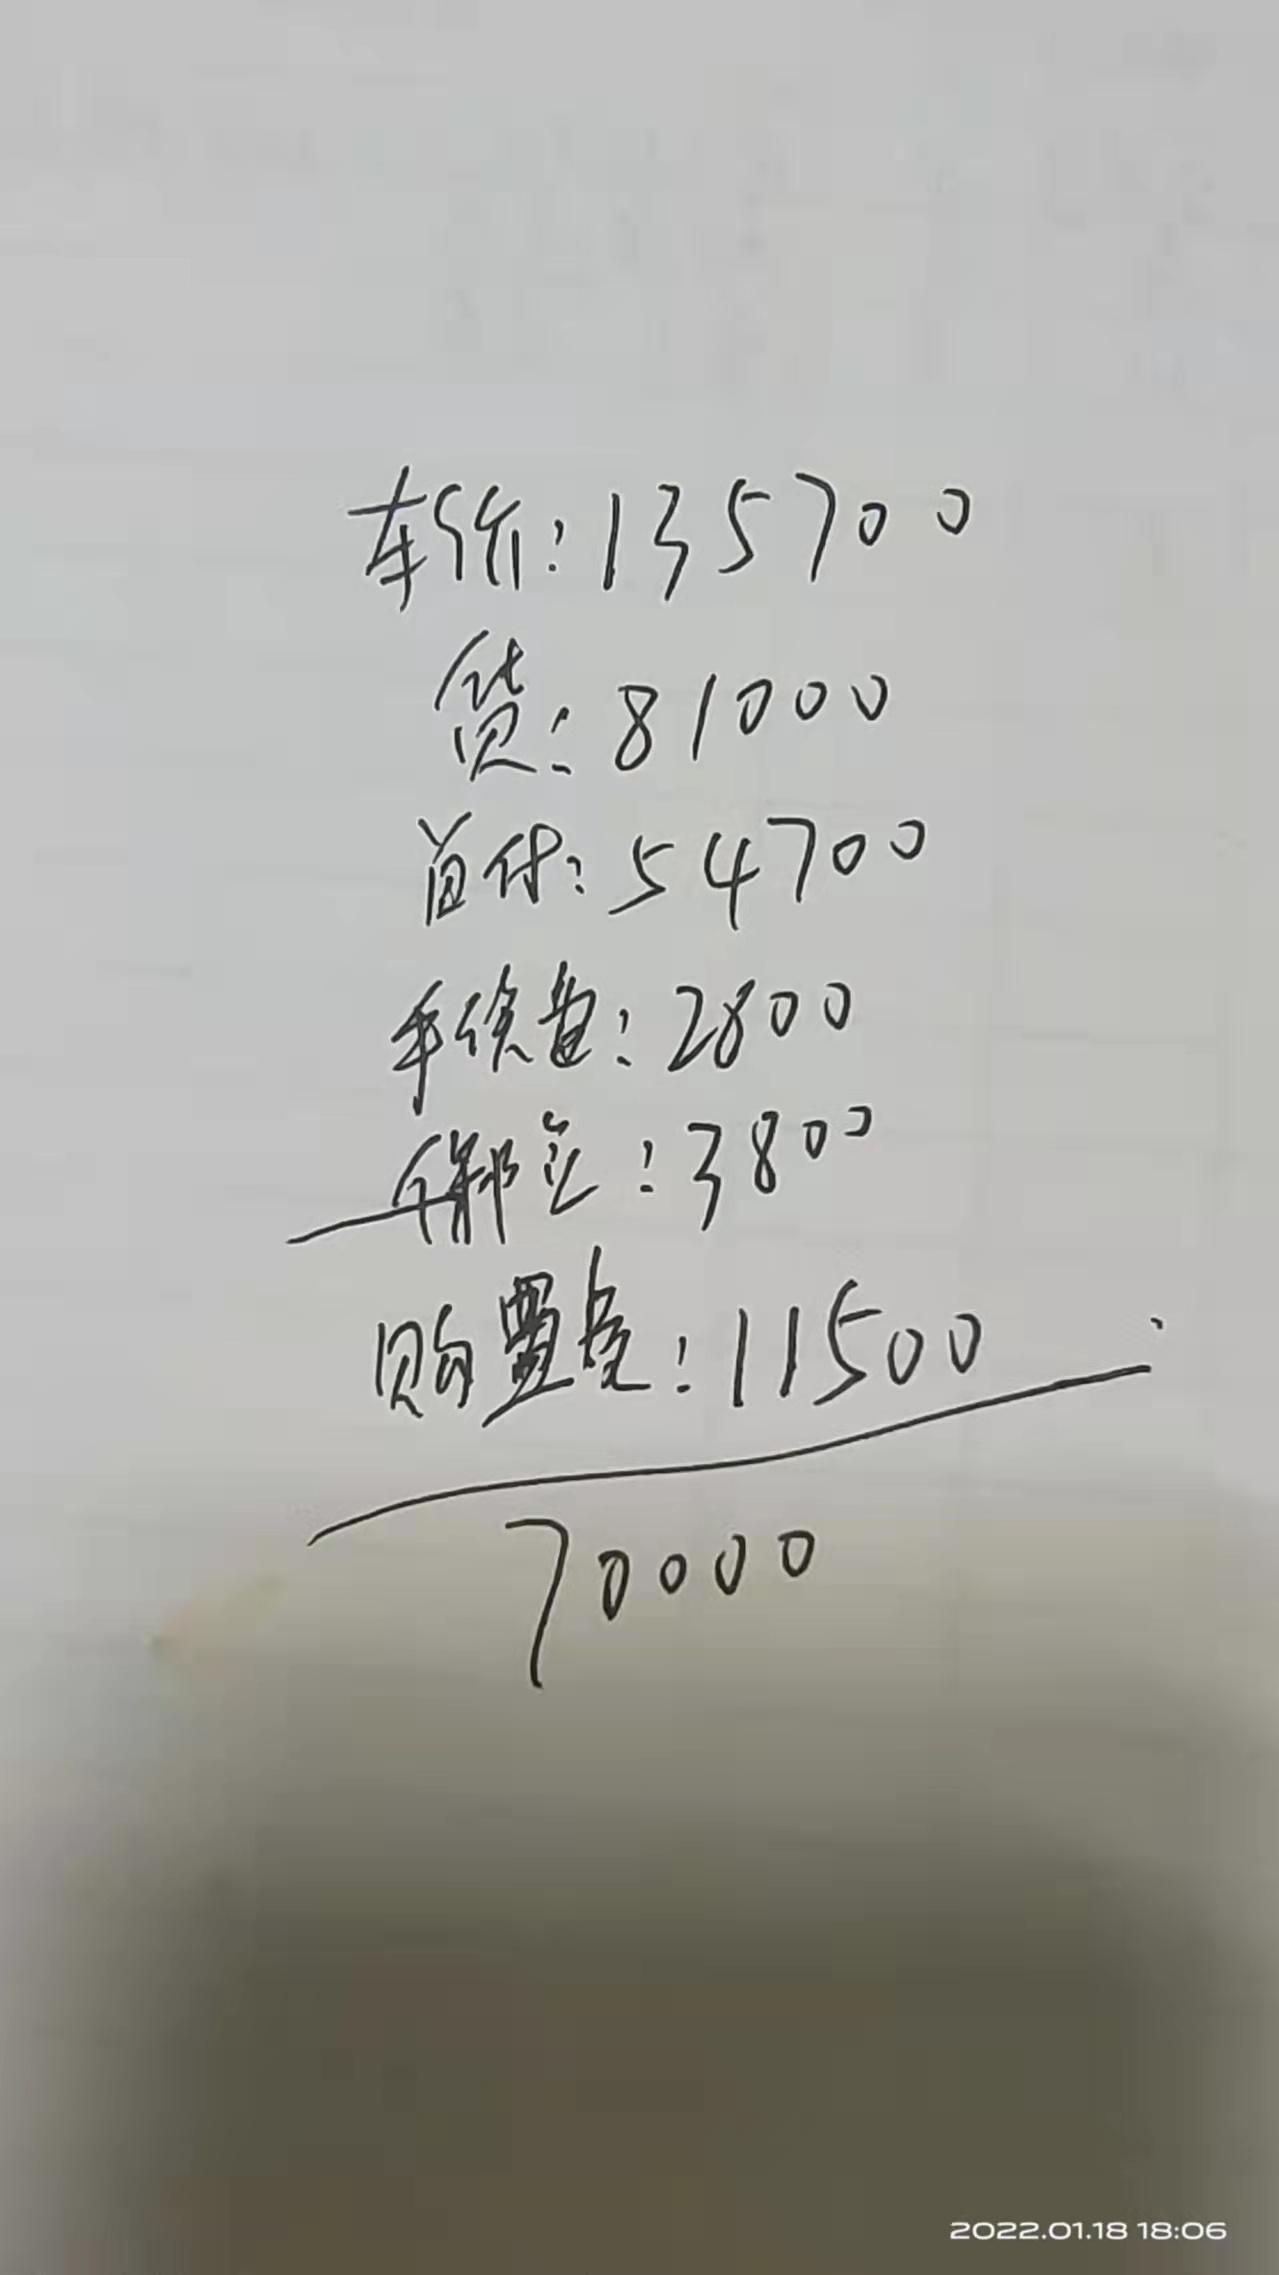 车价：135700
贷：81000
首付：54700
手续费：2800
：3800
购置税：11500
70000
2022.01.18 18:06